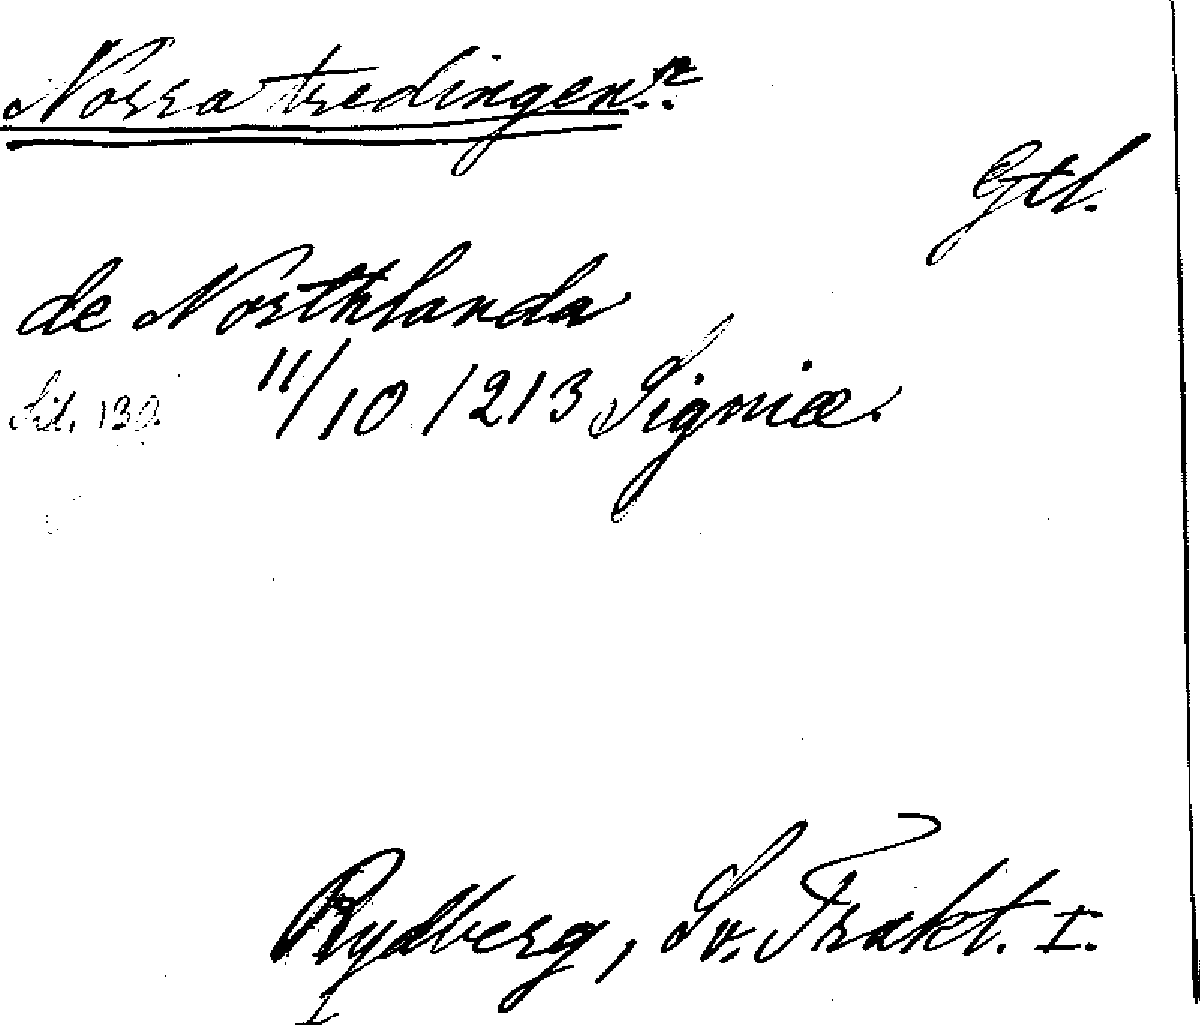 Norra tredingen.
Gtl.
de Northlanda
Sid. 139 11/10 1213 Signiæ.
Rydberg, Sv. Trakt. I.
I